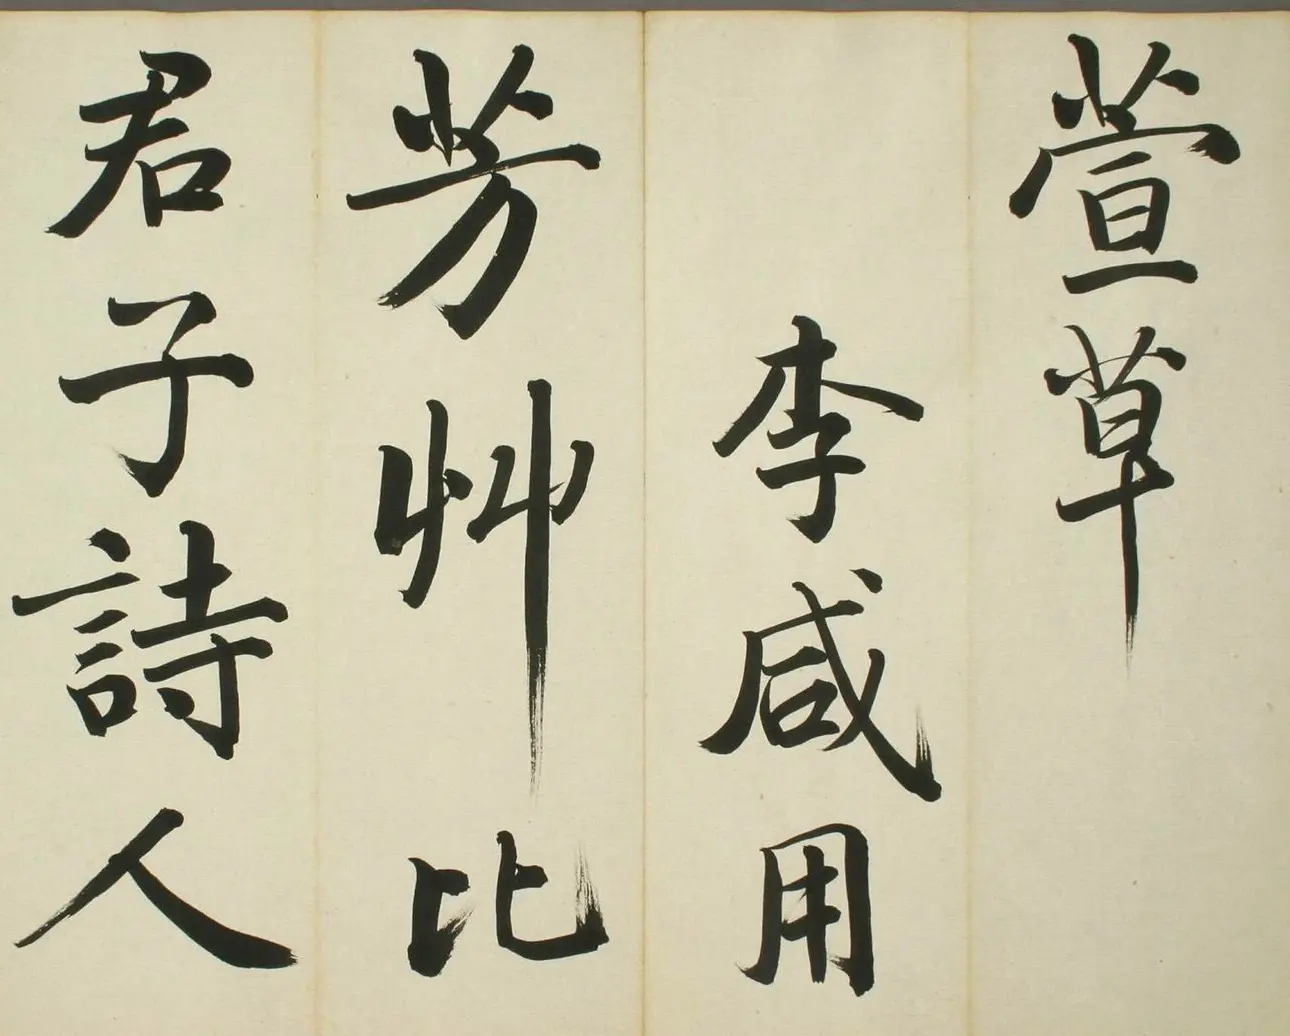 萱草
李咸用
芳艸比
君子詩人